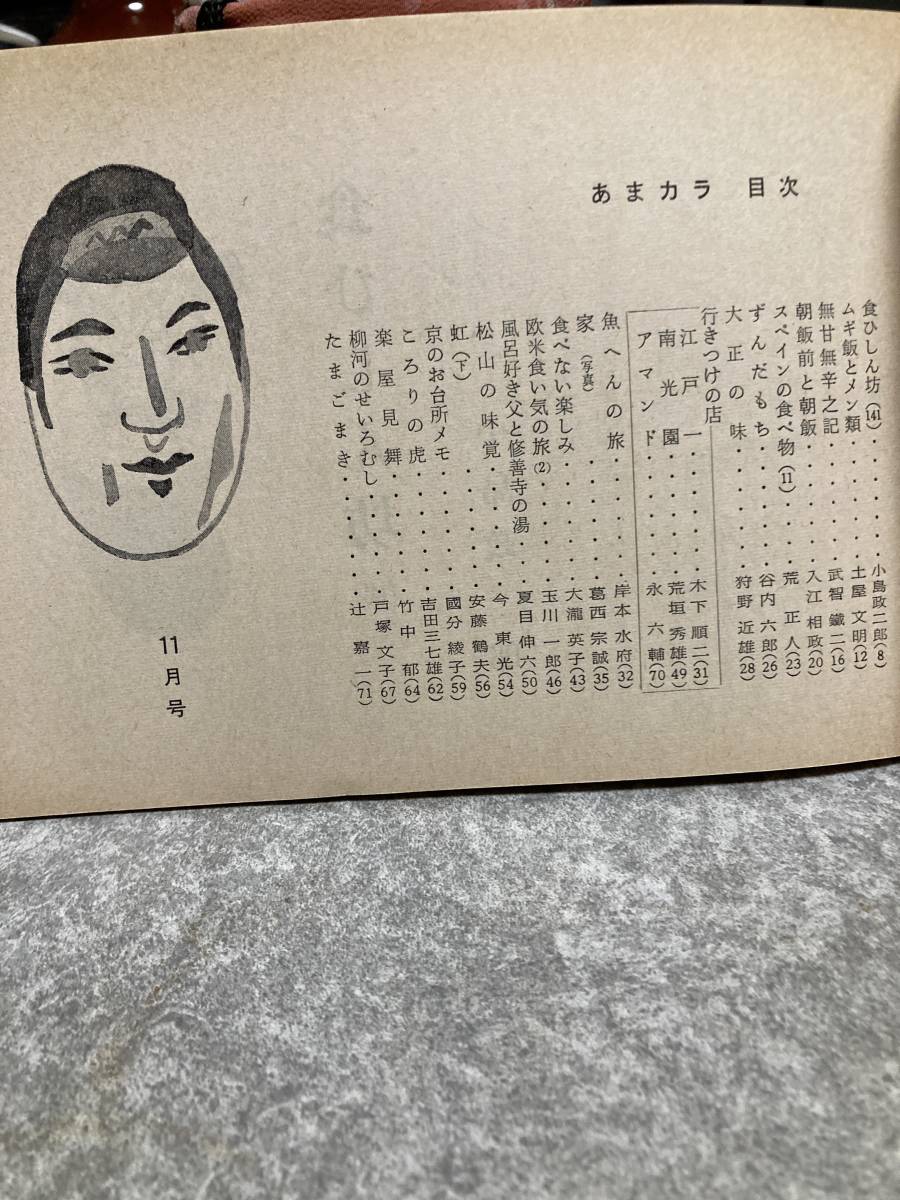 あまカラ 目次
食ひしん坊(4)・・・・・・小島政二郎(8)
ムギ飯とメン類・・・・・・土屋文明(12)
無甘無辛之記・・・・・・武智鐵二(16)
朝飯前と朝飯・・・・・・入江相政(20)
スペインの食べ物(11)・・・・荒正人(23)
ずんだもち・・・・・・谷内六郎(26)
大正の味・・・・・・狩野近雄(28)
行きつけの店
江戸一・・・・・・木下順二(31)
南光園・・・・・・荒垣秀雄(49)
アマンド・・・・・・永六輔(70)
魚へんの旅・・・・・・岸本水府(32)
家(写真)・・・・・・葛西宗誠(35)
食べない楽しみ・・・・・・大瀧英子(43)
欧米食い気の旅(2)・・・・・玉川一郎(46)
風呂好き父と修善寺の湯・・・夏目伸六(50)
松山の味覚・・・・・・今東光(54)
虹(下)・・・・・・安藤鶴夫(56)
京のお台所メモ・・・・・・國分綾子(59)
ころりの虎・・・・・・吉田三七雄(62)
楽屋見舞・・・・・・竹中郁(64)
柳河のせいろむし・・・・・戸塚文子(67)
たまごまき・・・・・・辻嘉一(71)
11月号